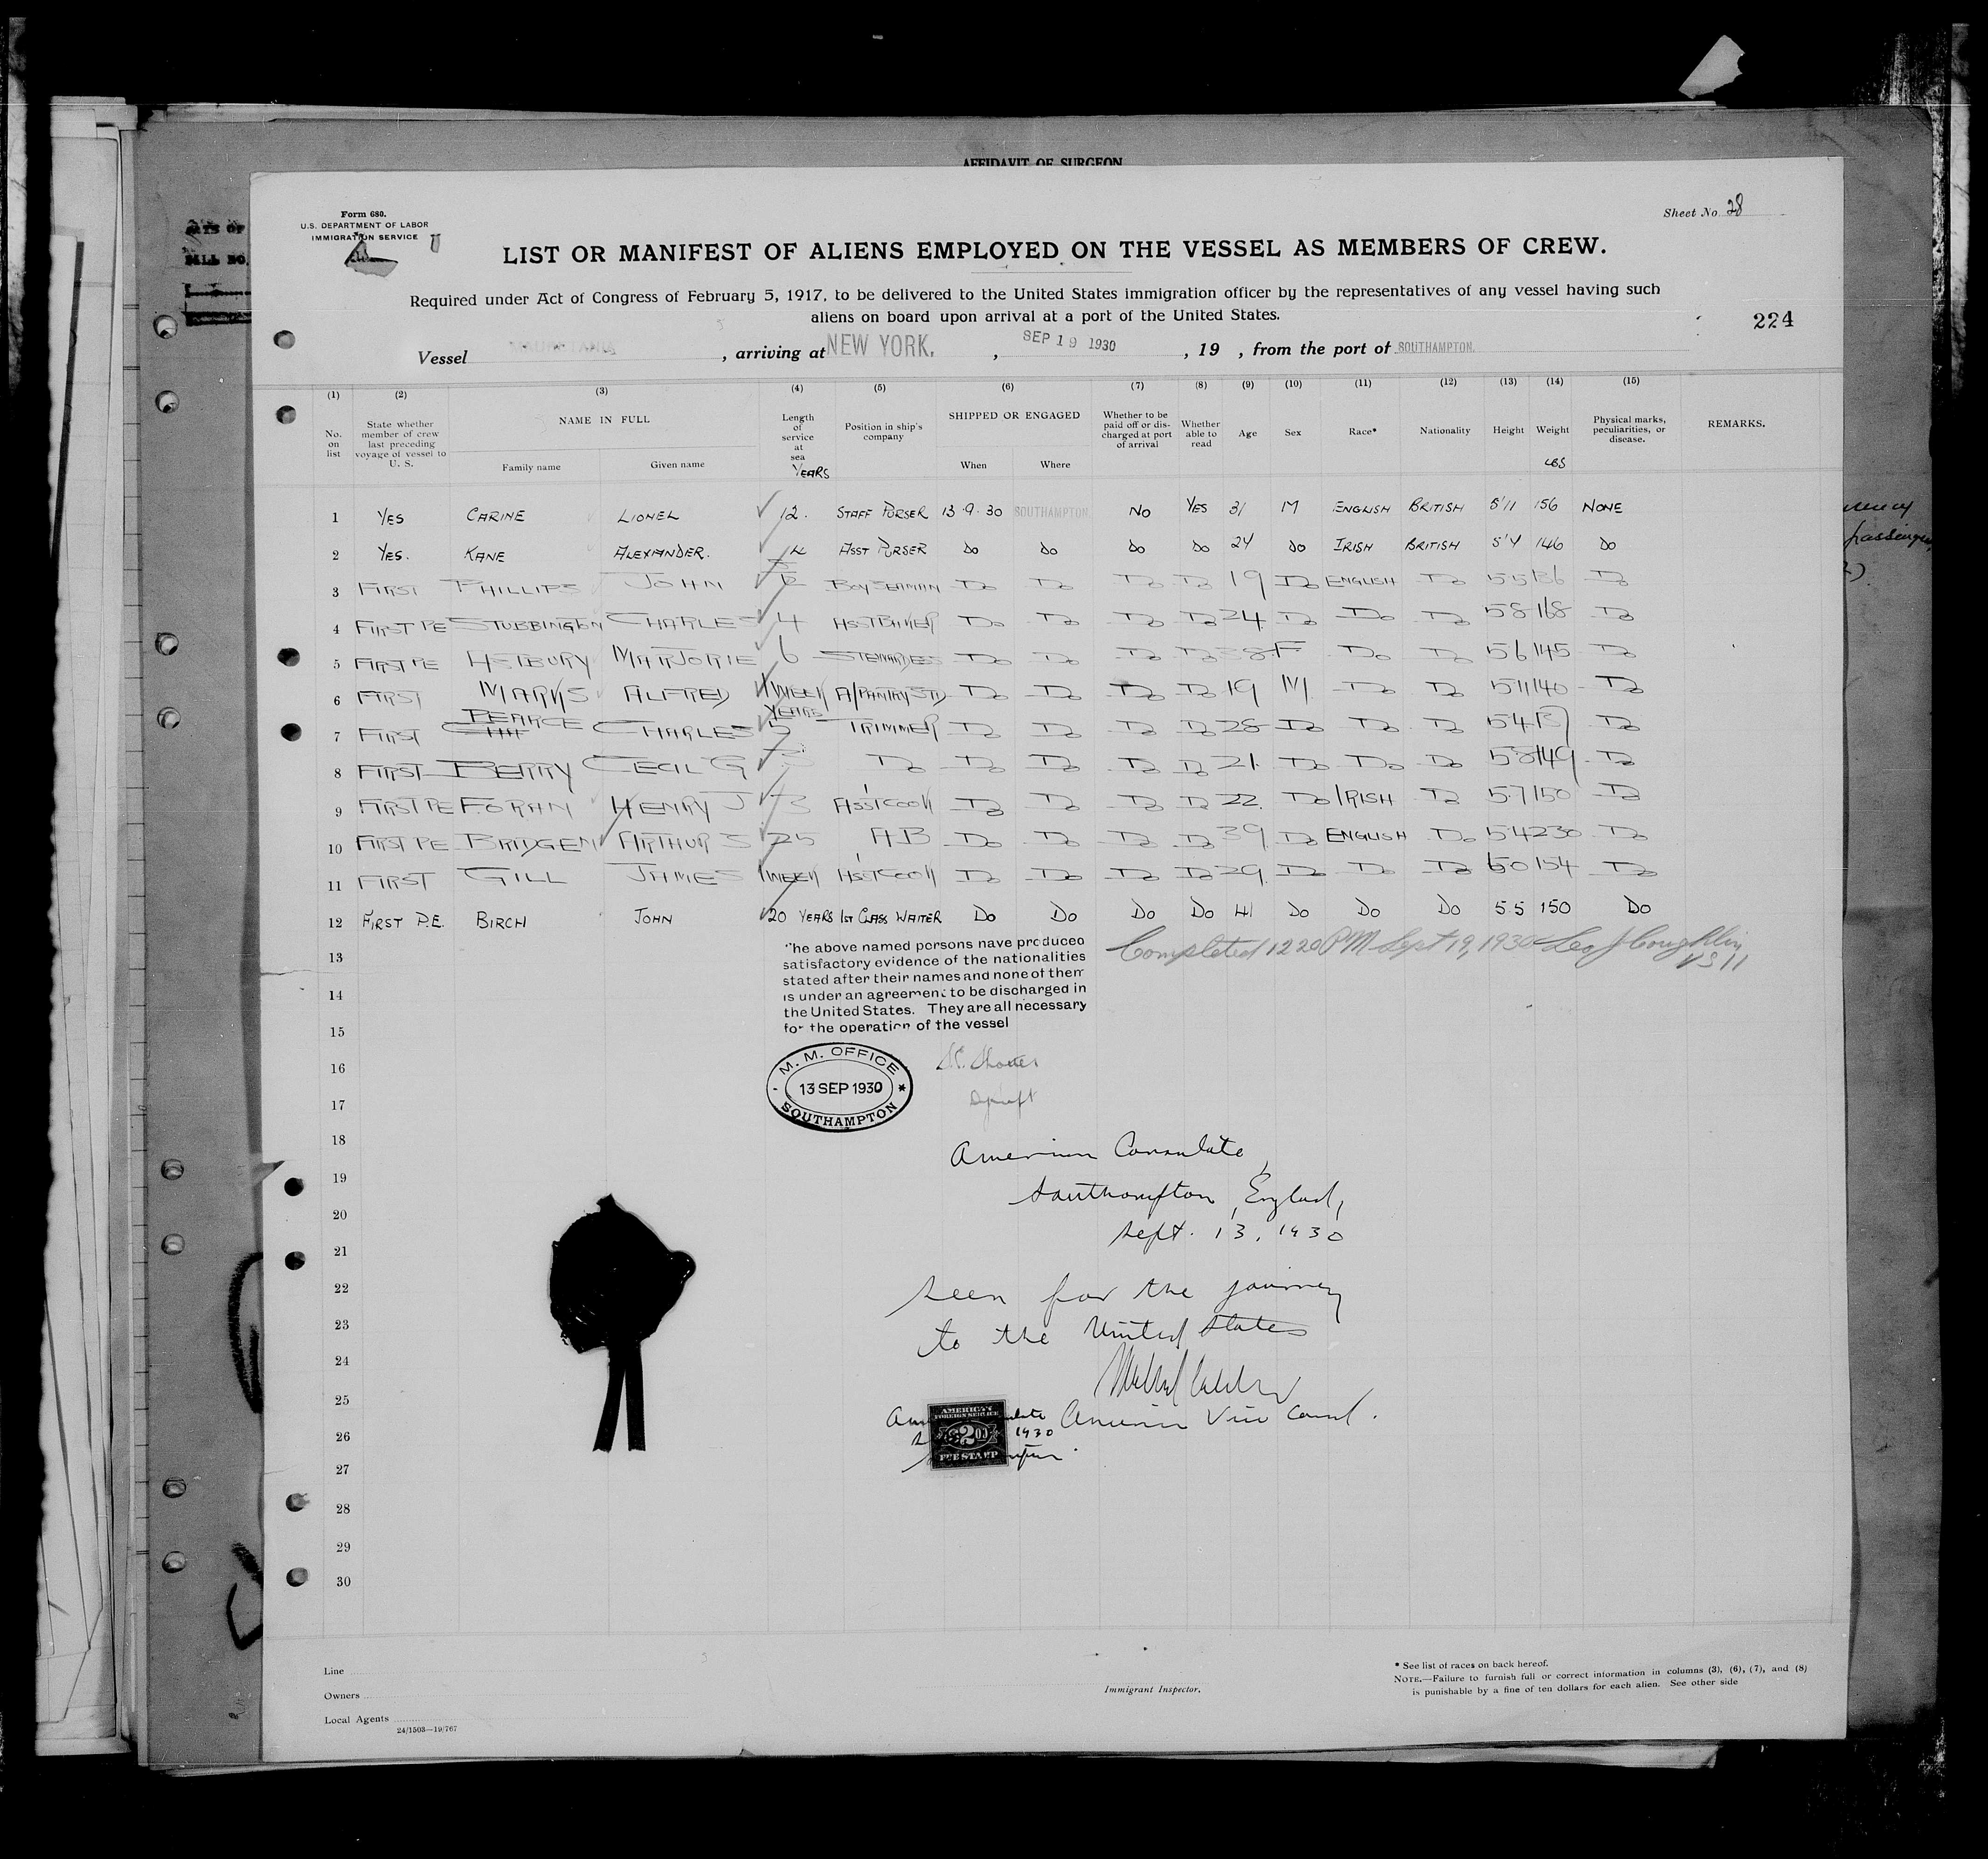 AFFIDAVIT OF SURGEON
Form 680.
U.S. DEPARTMENT OF LABOR
IMMIGRATION SERVICE
Sheet No. 28
LIST OR MANIFEST OF ALIENS EMPLOYED ON THE VESSEL AS MEMBERS OF CREW.
Required under Act of Congress of February 5, 1917, to be delivered to the United States immigration officer by the representatives of any vessel having such
aliens on board upon arrival at a port of the United States.
224
Vessel MAURETANIA, arriving at NEW YORK. , SEP 19 1930 , 19 , from the port of SOUTHAMPTON.
(1) (2) (3) (4) (5) (6) (7) (8) (9) (10) (11) (12) (13) (14) (15)
No. on list
State whether member of crew last preceding voyage of vessel to U. S.
NAME IN FULL
Family name Given name
Length of service at sea YEARS
Position in ship's company
SHIPPED OR ENGAGED
When Where
Whether to be paid off or discharged at port of arrival
Whether able to read
Age Sex Race* Nationality Height Weight LBS
Physical marks, peculiarities, or disease.
REMARKS.
1 YES CARINE LIONEL 12. STAFF PURSER 13.9.30 SOUTHAMPTON NO YES 31 M ENGLISH BRITISH 5'11 156 NONE
2 YES. KANE ALEXANDER. ASST PURSER DO DO DO DO 24 DO IRISH BRITISH 5'4 146 DO
3 FIRST PHILLIPS JOHN BOY SEAMAN DO DO DO DO 19 DO ENGLISH DO 5 5 136 DO
4 FIRST PE STUBBINGTON CHARLES 4 DO DO DO DO 24 DO DO DO 5 8 168 DO
5 FIRST PE MARJORIE 6 STEWARDESS DO DO DO DO 38 F DO DO 5 6 145 DO
6 FIRST MARKS ALFRED 1 WEEK A/PANTRY STD DO DO DO DO 19 M DO DO 5 11 140 DO
7 FIRST PEARCE CHARLES YEARS TRIMMER DO DO DO DO 28 DO DO DO 5 4 137 DO
8 FIRST BERRY CECIL G DO DO DO DO DO 21 DO DO DO 5 8 149 DO
9 FIRST PE FORAN HENRY J 3 ASST COOK DO DO DO DO 22 DO IRISH DO 5 7 150 DO
10 FIRST PE BRIDGEN ARTHUR S 25 AB DO DO DO DO 39 DO ENGLISH DO 5 4 230 DO
11 FIRST GILL JAMES 1 WEEK ASST COOK DO DO DO DO 29 DO DO DO 6 0 154 DO
12 FIRST P.E. BIRCH JOHN 20 YEARS 1ST CLASS WAITER DO DO DO DO 41 DO DO DO 5.5 150 DO
The above named persons have produced
satisfactory evidence of the nationalities
stated after their names and none of them
is under an agreement to be discharged in
the United States. They are all necessary
for the operation of the vessel
Completed 12 20 PM Sept 19, 1930 Leo J Coughlin
13
14
15
16
17
18
19
20
21
22
23
24
25
26
27
28
29
30
M. M. OFFICE
13 SEP 1930
SOUTHAMPTON
American Consulate,
Southampton, England,
Sept. 13, 1930
Seen for the journey
to the United States
American Vice Consul.
1930
AMERICAN
FOREIGN SERVICE
$2.00
FEE STAMP
Line
Owners
Local Agents
24/1503—19/767
Immigrant Inspector.
* See list of races on back hereof.
NOTE.—Failure to furnish full or correct information in columns (3), (6), (7), and (8)
is punishable by a fine of ten dollars for each alien. See other side